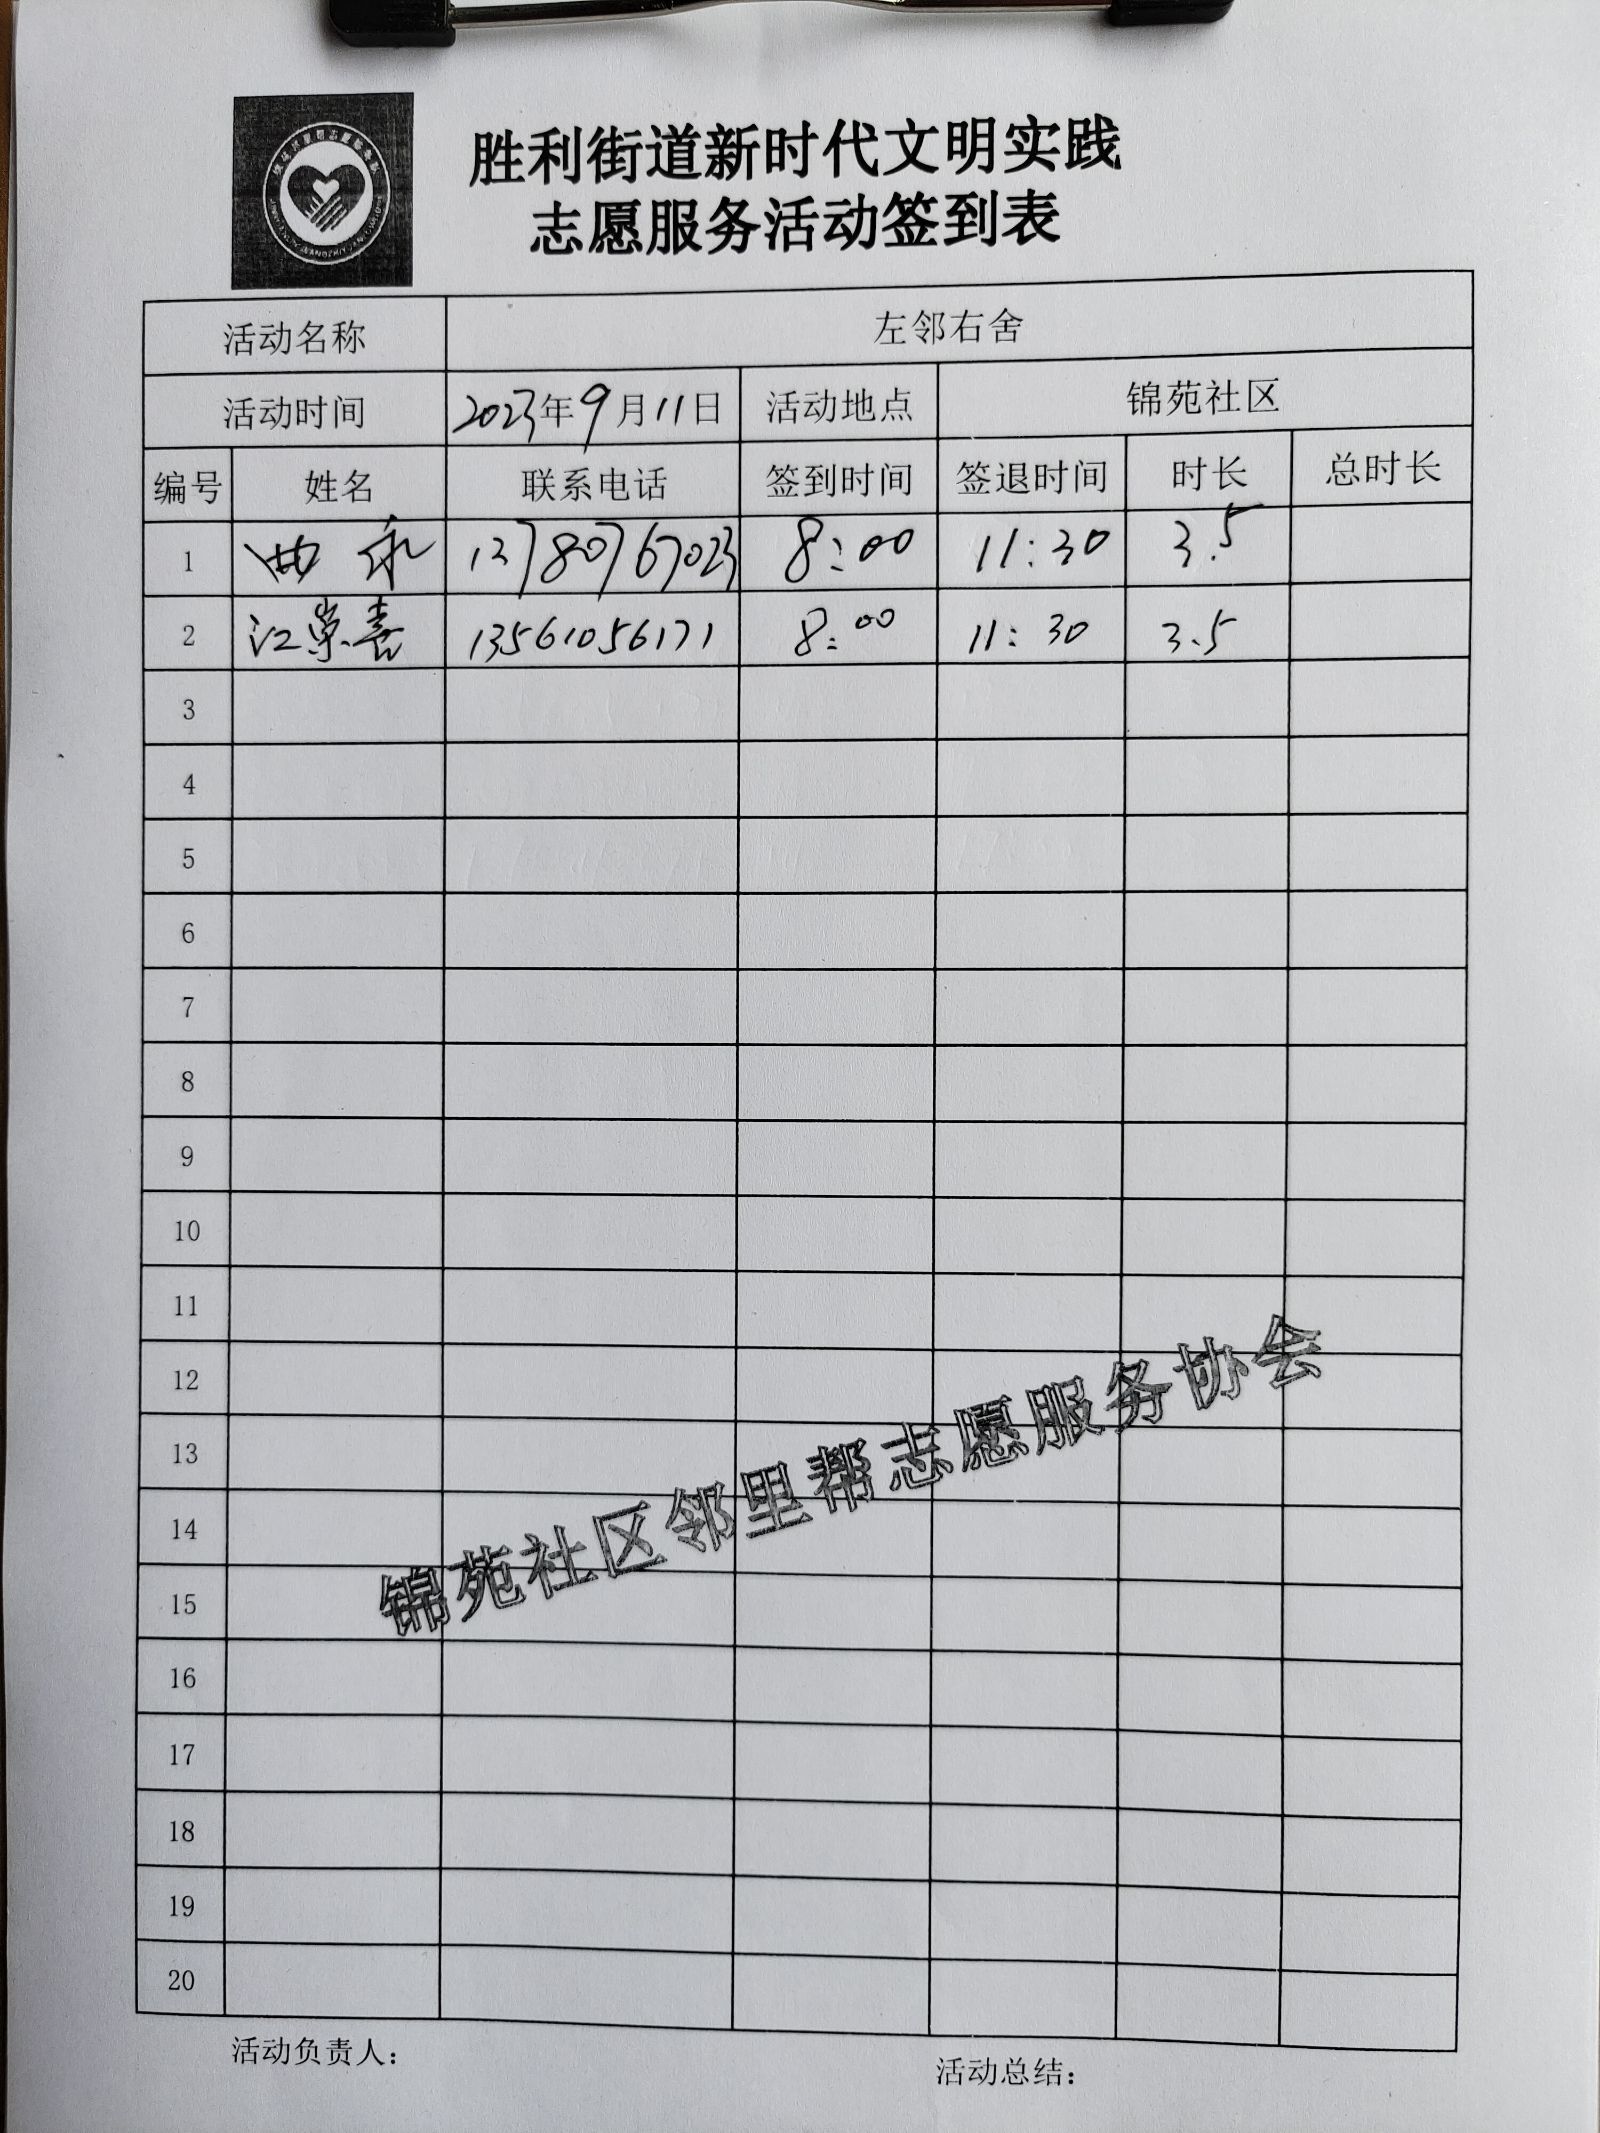 胜利街道新时代文明实践
志愿服务活动签到表
活动名称 左邻右舍
活动时间 2023年9月11日 活动地点 锦苑社区
编号 姓名 联系电话 签到时间 签退时间 时长 总时长
1 曲永 13780767023 8:00 11:30 3.5
2 江崇喜 13561056171 8:00 11:30 3.5
3
4
5
6
7
8
9
10
11
12
13
14
15
16
17
18
19
20
锦苑社区邻里帮志愿服务协会
活动负责人：
活动总结：